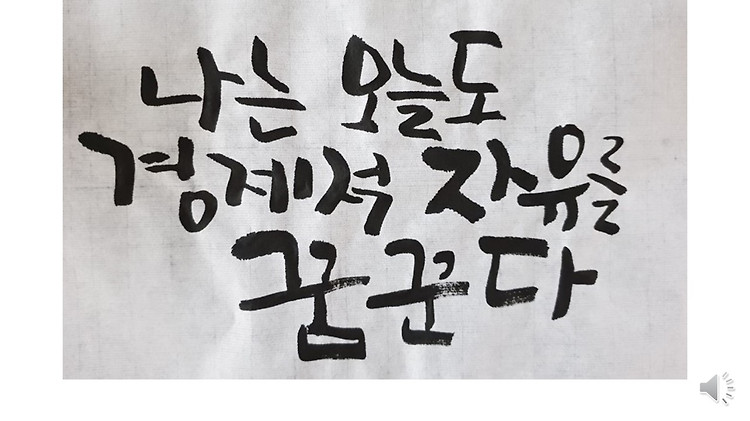 나는 오늘도
경제적 자유를
꿈꾼다